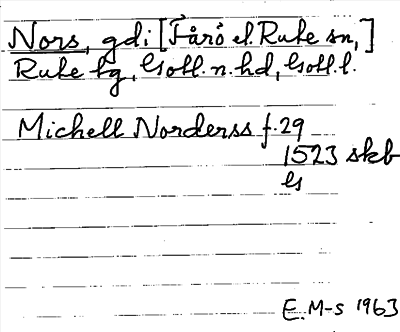 Nors, gdi [Fårö el. Rute sn,]
Rute tg, Gotl. n. hd, Gotl. l.
Michell Norderss f. 29
1523 skb
Gs
E. M-s 1963